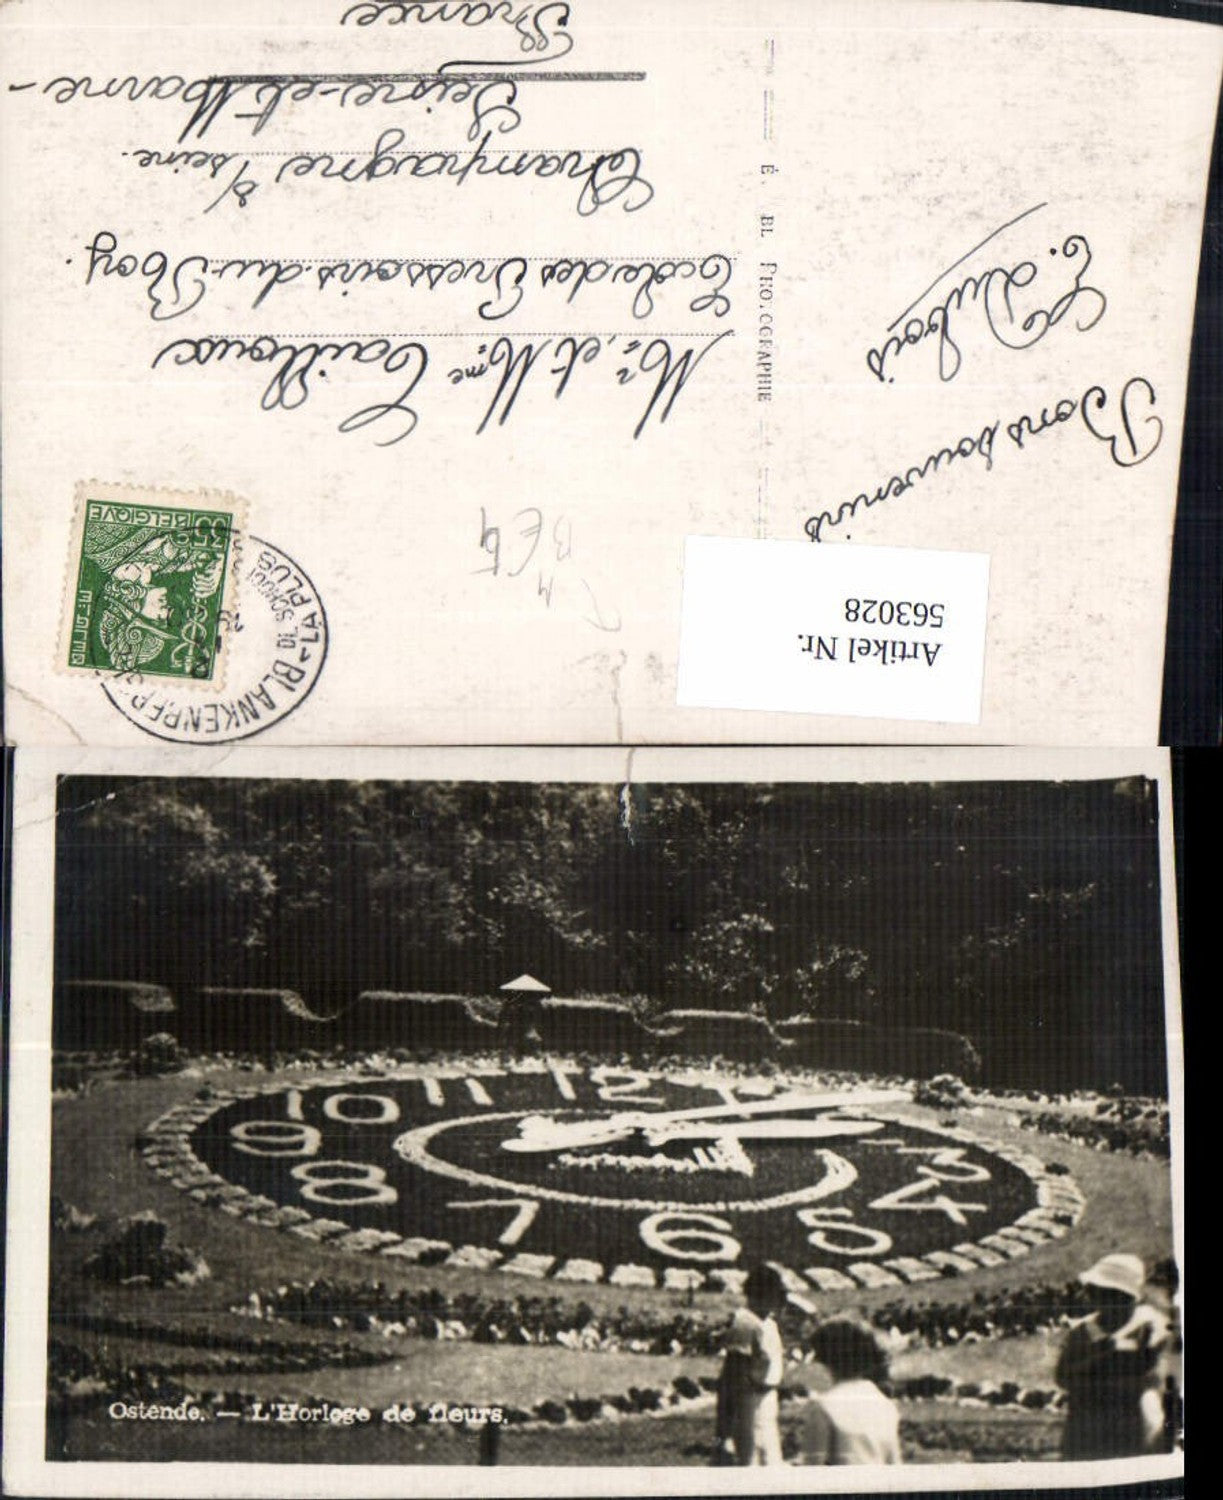 Bons souvenirs
E. Dubois
É. BL PHOTOGRAPHIE
Mr. et Mme Cailloux
École des Pressoirs du Roy.
Champagne s/seine.
Seine-et-Marne-
France
BELGIQVE
35
BLANKENBER
LA PLUS
SCHOO
Artikel Nr.
563028
10
11
12
9
8
7
6
5
4
3
Ostende. — L'Horloge de fleurs.